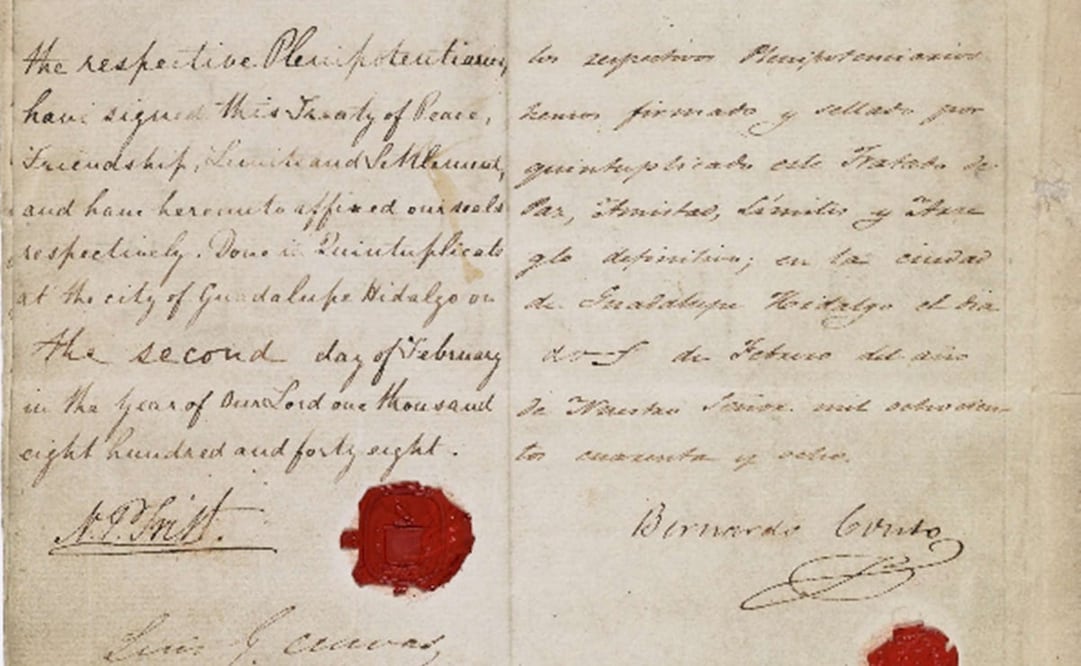 the respective Plenipotentiaries
have signed this Treaty of Peace,
Friendship, Limits and Settlement,
and have hereunto affixed our seals
respectively. Done in Quintuplicate
at the city of Guadalupe Hidalgo on
the second day of February
in the year of Our Lord one thousand
eight hundred and forty eight.
N. P. Trist.
Luis G. Cuevas
los respectivos Plenipotenciarios
hemos firmado y sellado por
quintuplicado este Tratado de
Paz, Amistad, Límites y Arre
glo definitivo; en la ciudad
de Guadalupe Hidalgo el dia
dos de Febrero del año
de Nuestro Señor mil ochocien-
tos cuarenta y ocho.
Bernardo Couto